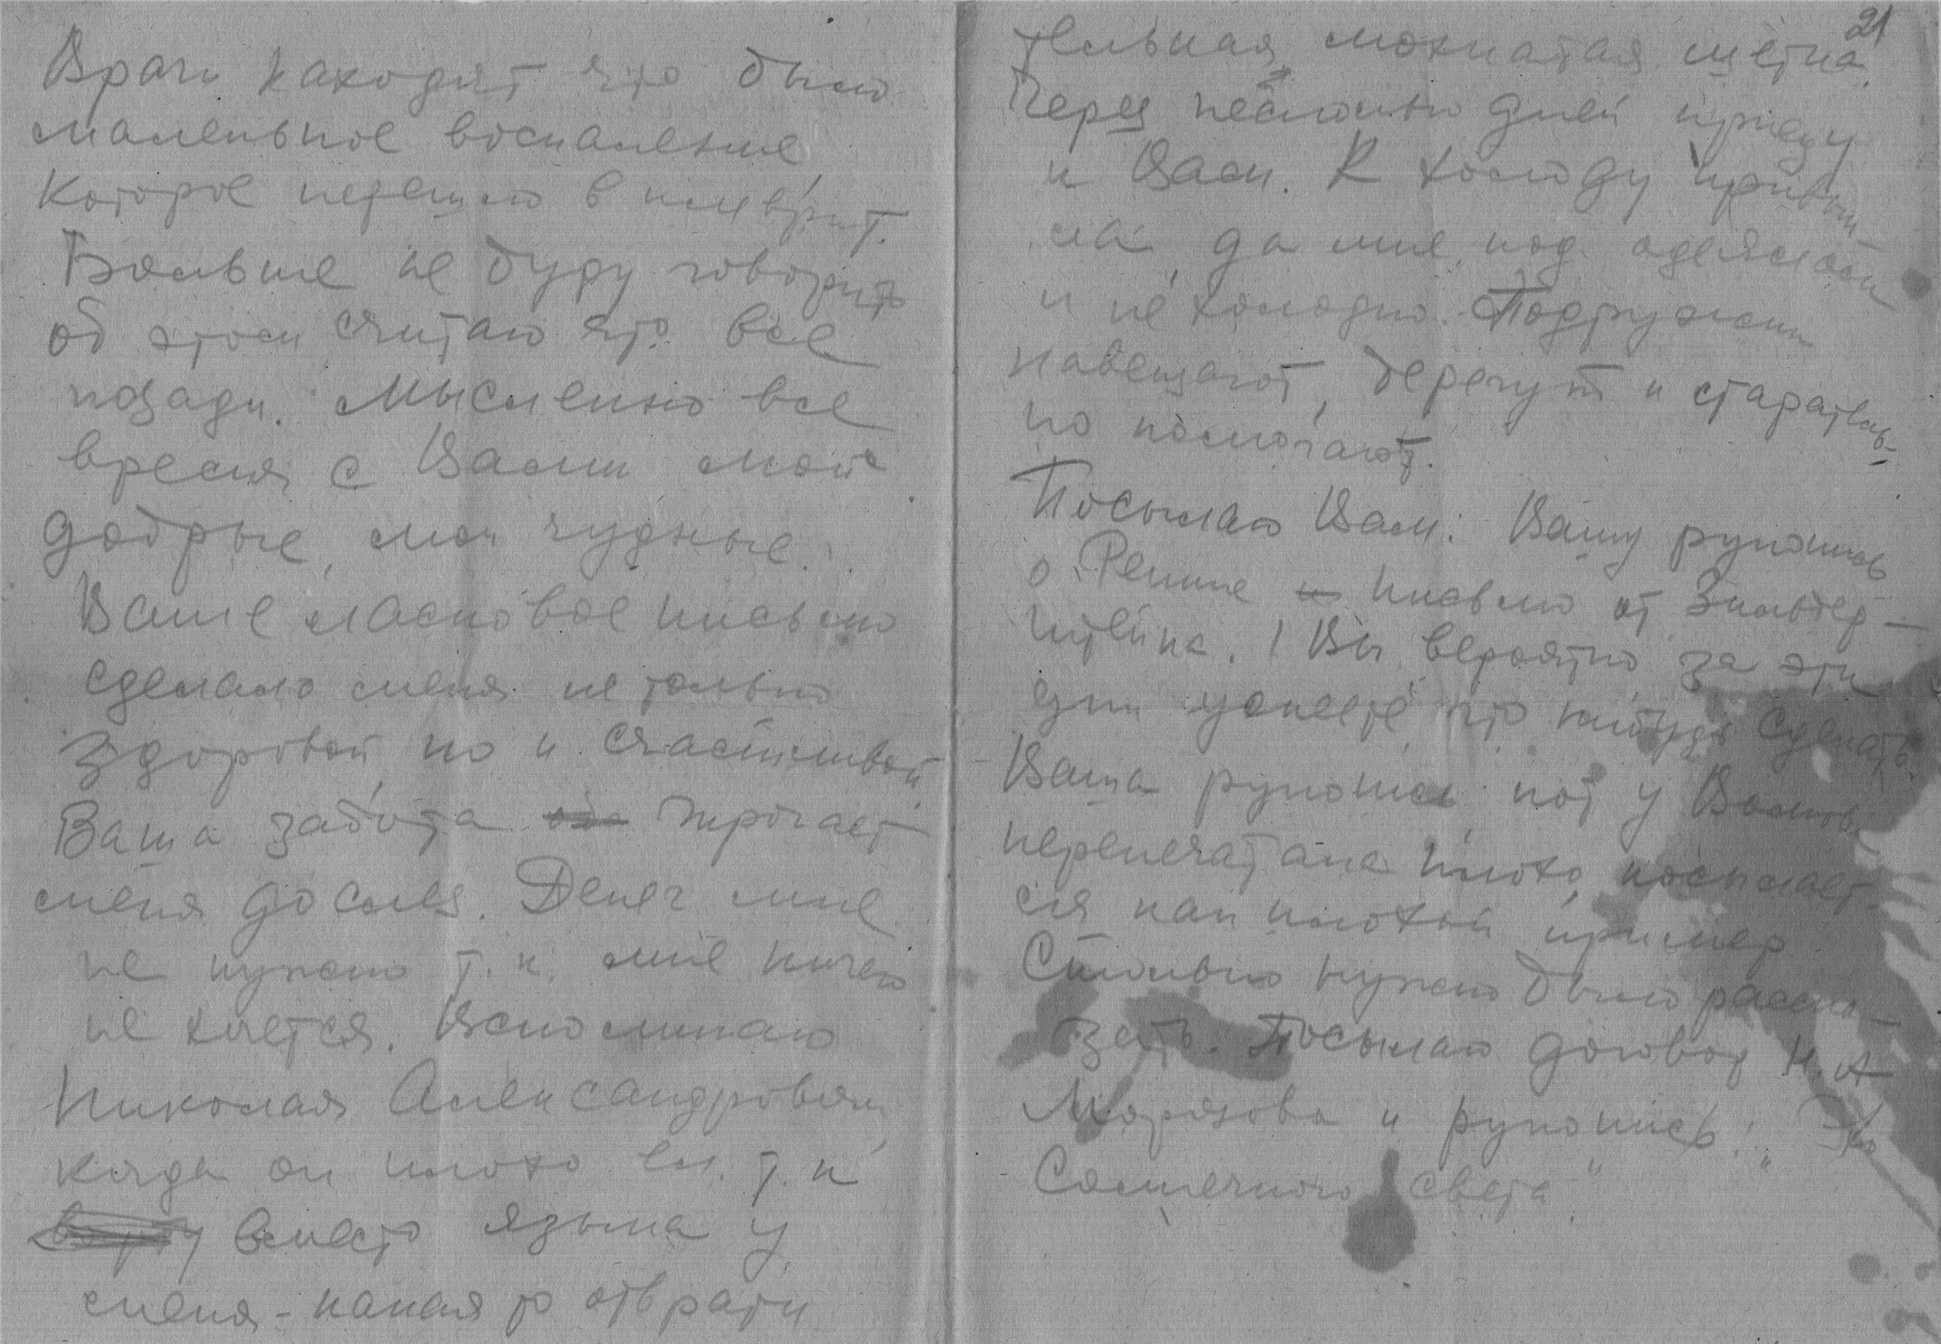 Врачи находят что было
маленькое воспаление,
которое перешло в плеврит.
Больше не буду говорить
об этом считаю что все
позади. Мысленно все
время с Вами мои
добрые, мои чудные.
Ваше ласковое письмо
сделало меня не только
здоровой, но и счастливой
Ваша забота трогает
меня до слез. Денег мне
не нужно т.к. мне ничего
не хочется. Вспоминаю
Николая Александровича,
когда он плохо ел. т.к
вместо языка у
меня - какая то отврати
21
тельная, мохнатая щетка.
Через несколько дней приеду
к Вам. К холоду привык-
ла, да мне под одеялом
и не холодно. Подружки
навещают, берегут и старатель-
но помогают.
Посылаю Вам: Вашу рукопись
о Репине письмо от Зильбер-
штейна. Вы вероятно за эти
дни успеете что нибудь сделать.
Ваша рукопись, кот у
перепечатана плохо, посылает-
ся как плохой пример.
Столько нужно было расска-
зать. Посылаю договор Н.А
Морозова и рукопись: "Эхо
Солнечного света"